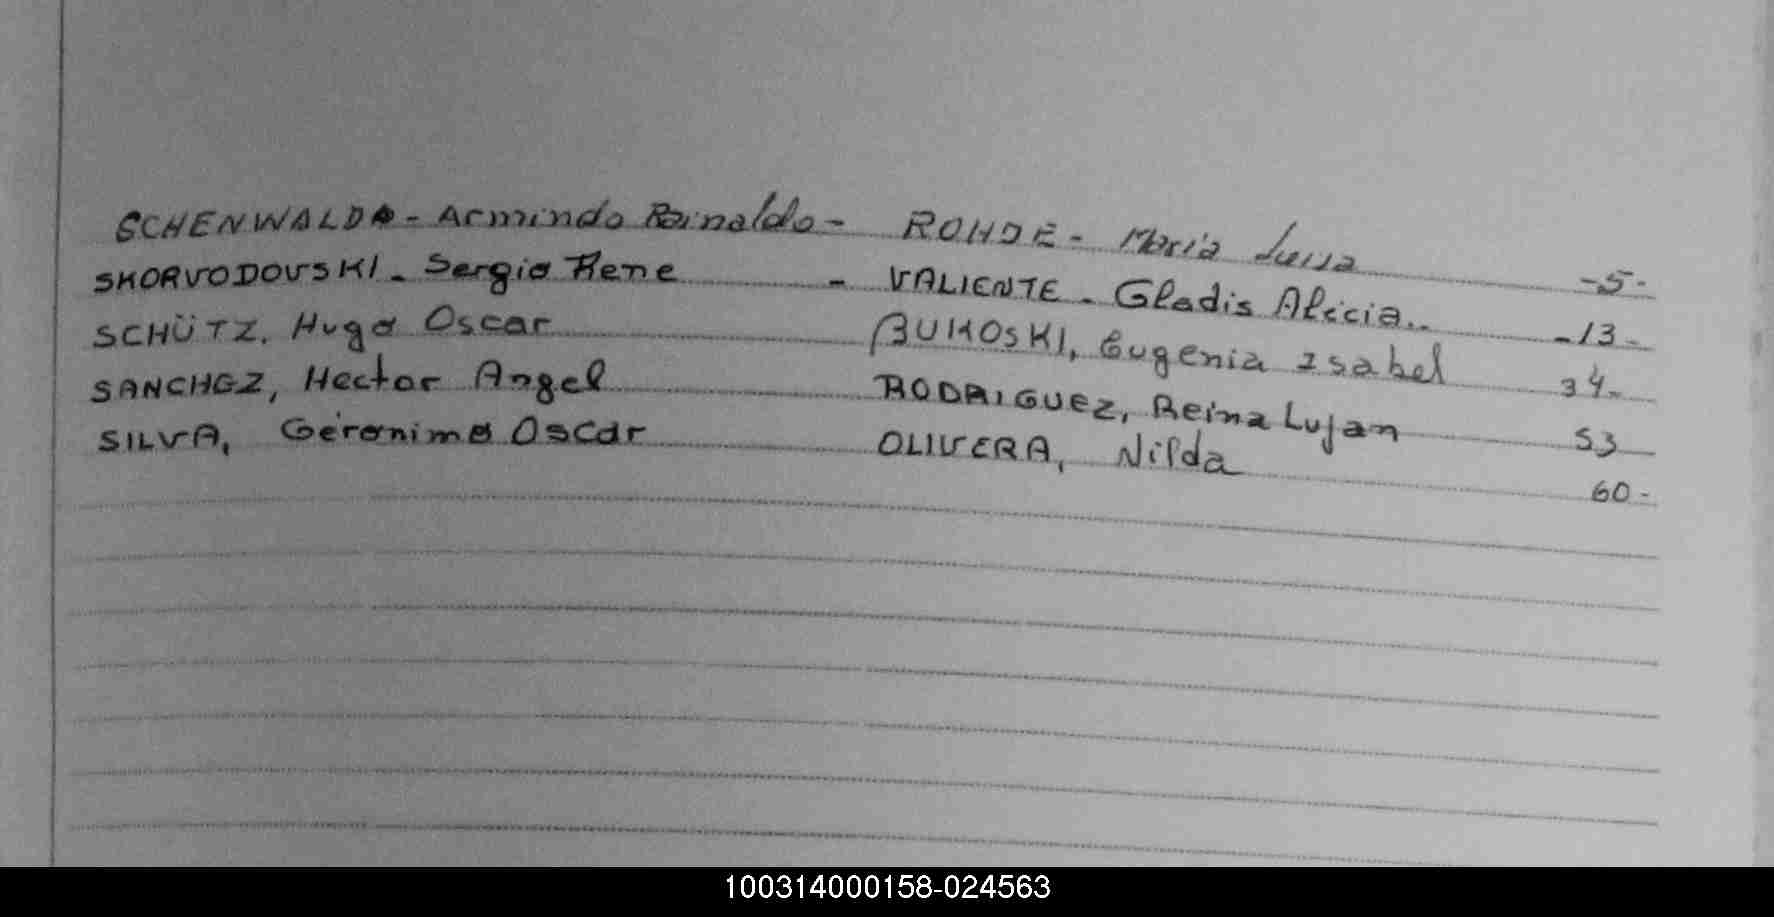 SCHENWALD - Armindo Reinaldo - ROHDE - Maria Luisa -5-
SKORVODOVSKI - Sergio Rene - VALIENTE - Gladis Alicia.. -13-
SCHÜTZ, Hugo Oscar BUKOSKI, Eugenia Isabel 34-
SANCHEZ, Hector Angel RODRIGUEZ, Reina Lujan 53
SILVA, Gerónimo Oscar OLIVERA, Nilda 60-
100314000158-024563